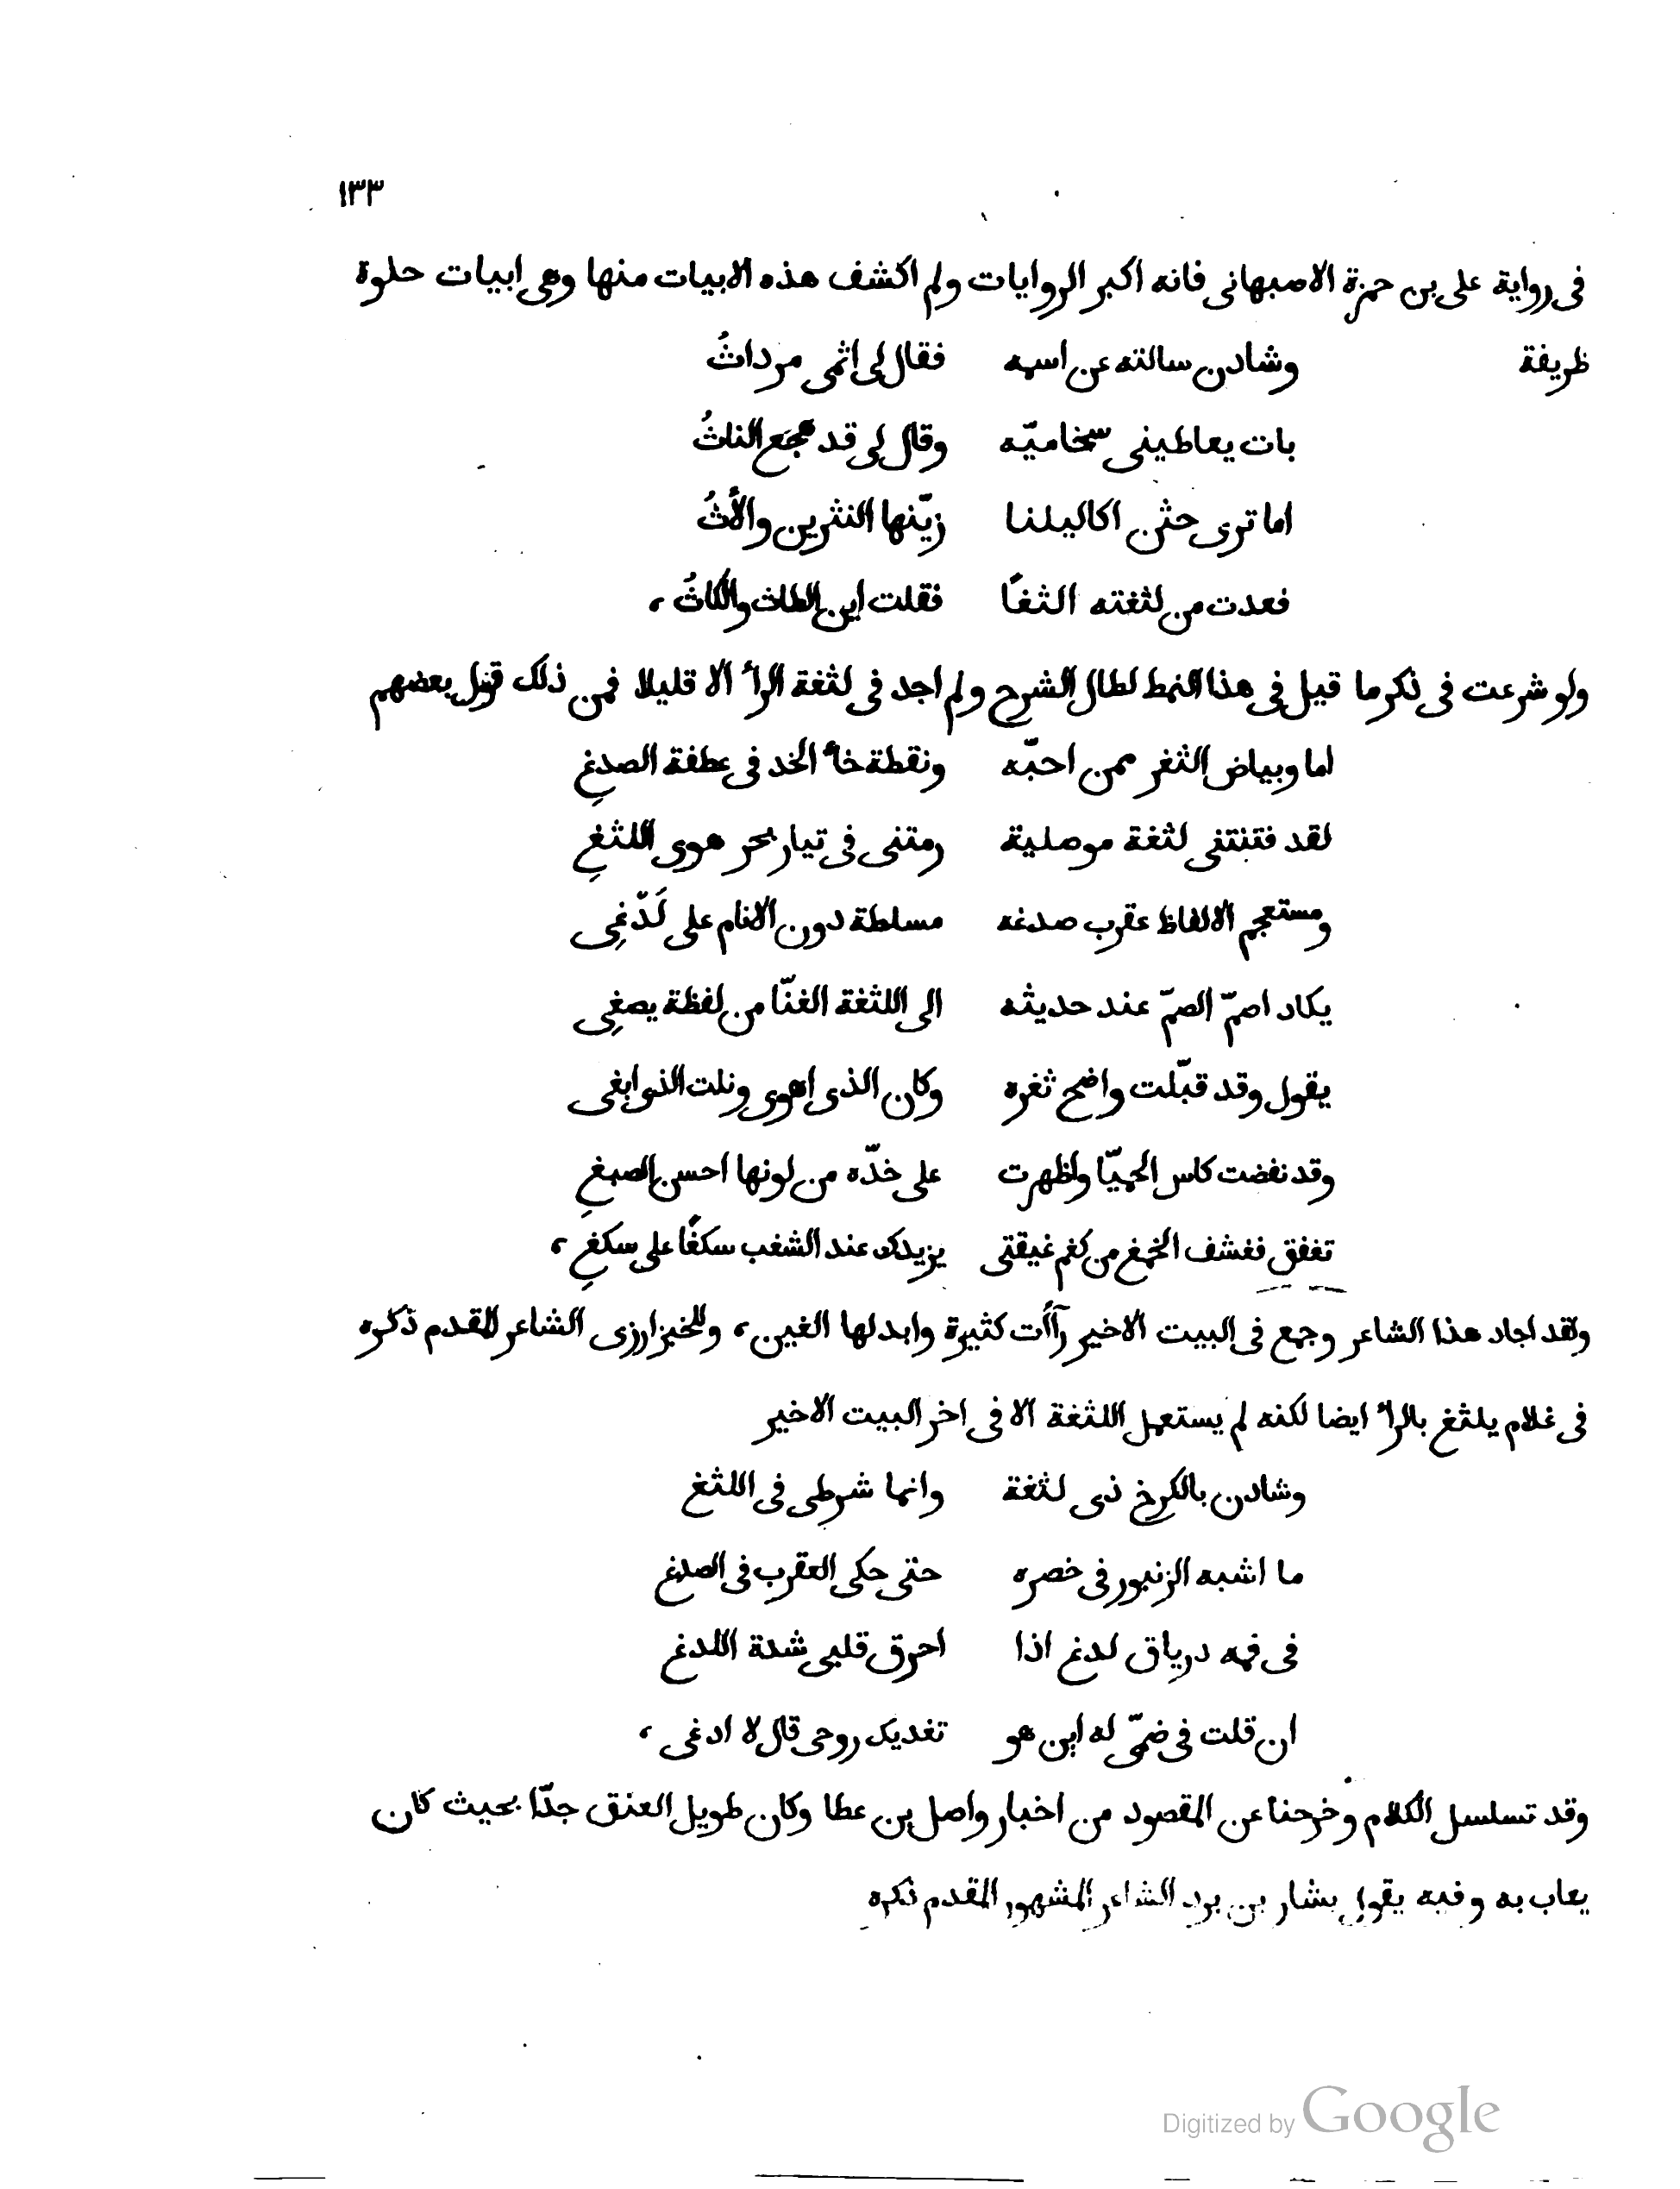 ١٣٣
فى رواية على بن حمزة الاصبهانى فانه اكبر الروايات ولم اكشف هذه الابيات منها وهى ابيات حلوة
ظريفة وشادن سالته عن اسمه فقال لى اثمى مرداثُ
بات يعاطينى سخاميّه وقال لى قد هجع الناثُ
اما ترى حثن اكاليلنا زيّنها النثرين والأثُ
فعدت من لثغته الثغًا فقلت اين الطاث والكاثُ ،
ولو شرعت فى ذكر ما قيل فى هذا النمط لطال الشرح ولم اجد فى لثغة الرأ الا قليلا فمن ذلك قول بعضهم
اما وبياض الثغر ممن احبّه ونقطة خأ الخد فى عطفة الصدغِ
لقد فتنتنى لثغة موصلية رمتنى فى تيار بحر هوى اللثغِ
ومستعجم الالفاظ عقرب صدغه مسلطة دون الانام على لَدّغِى
يكاد اصمّ الصمّ عند حديثه الى اللثغة الغنّا من لفظة يصغِى
يقول وقد قبّلت واضح ثغره وكان الذى اهوى ونلت الذى ابغى
وقد نفضت كاس الحميّا واظهرت على خدّه من لونها احسن الصبغِ
تغفق فغشف الخمغ من كغم غيقتى يزيدك عند الشغب سكغًا على سكغِ ،
ولقد اجاد هذا الشاعر وجمع فى البيت الاخير رآأت كثيرة وابدلها الغين ، وللخبزارزى الشاعر المقدم ذكره
فى غلام يلثغ بالرأ ايضا لكنه لم يستعمل اللثغة الا فى اخر البيت الاخير
وشادن بالكرخ ذى لثغة وانما شرطى فى اللثغ
ما اشبه الزنبور فى خصره حتى حكى العقرب فى الصدغ
فى فمه درياق لدغ اذا احرق قلبى شدة اللدغ
ان قلت فى ضمّى له اين هو تغديك روحى قال لا ادغى ،
وقد تسلسل الكلام وخرجنا عن المقصود من اخبار واصل بن عطا وكان طويل العنق جدّا بحيث كان
يعاب به وفيه يقول بشار بن برد الشاعر المشهور المقدم ذكره
Digitized by Google